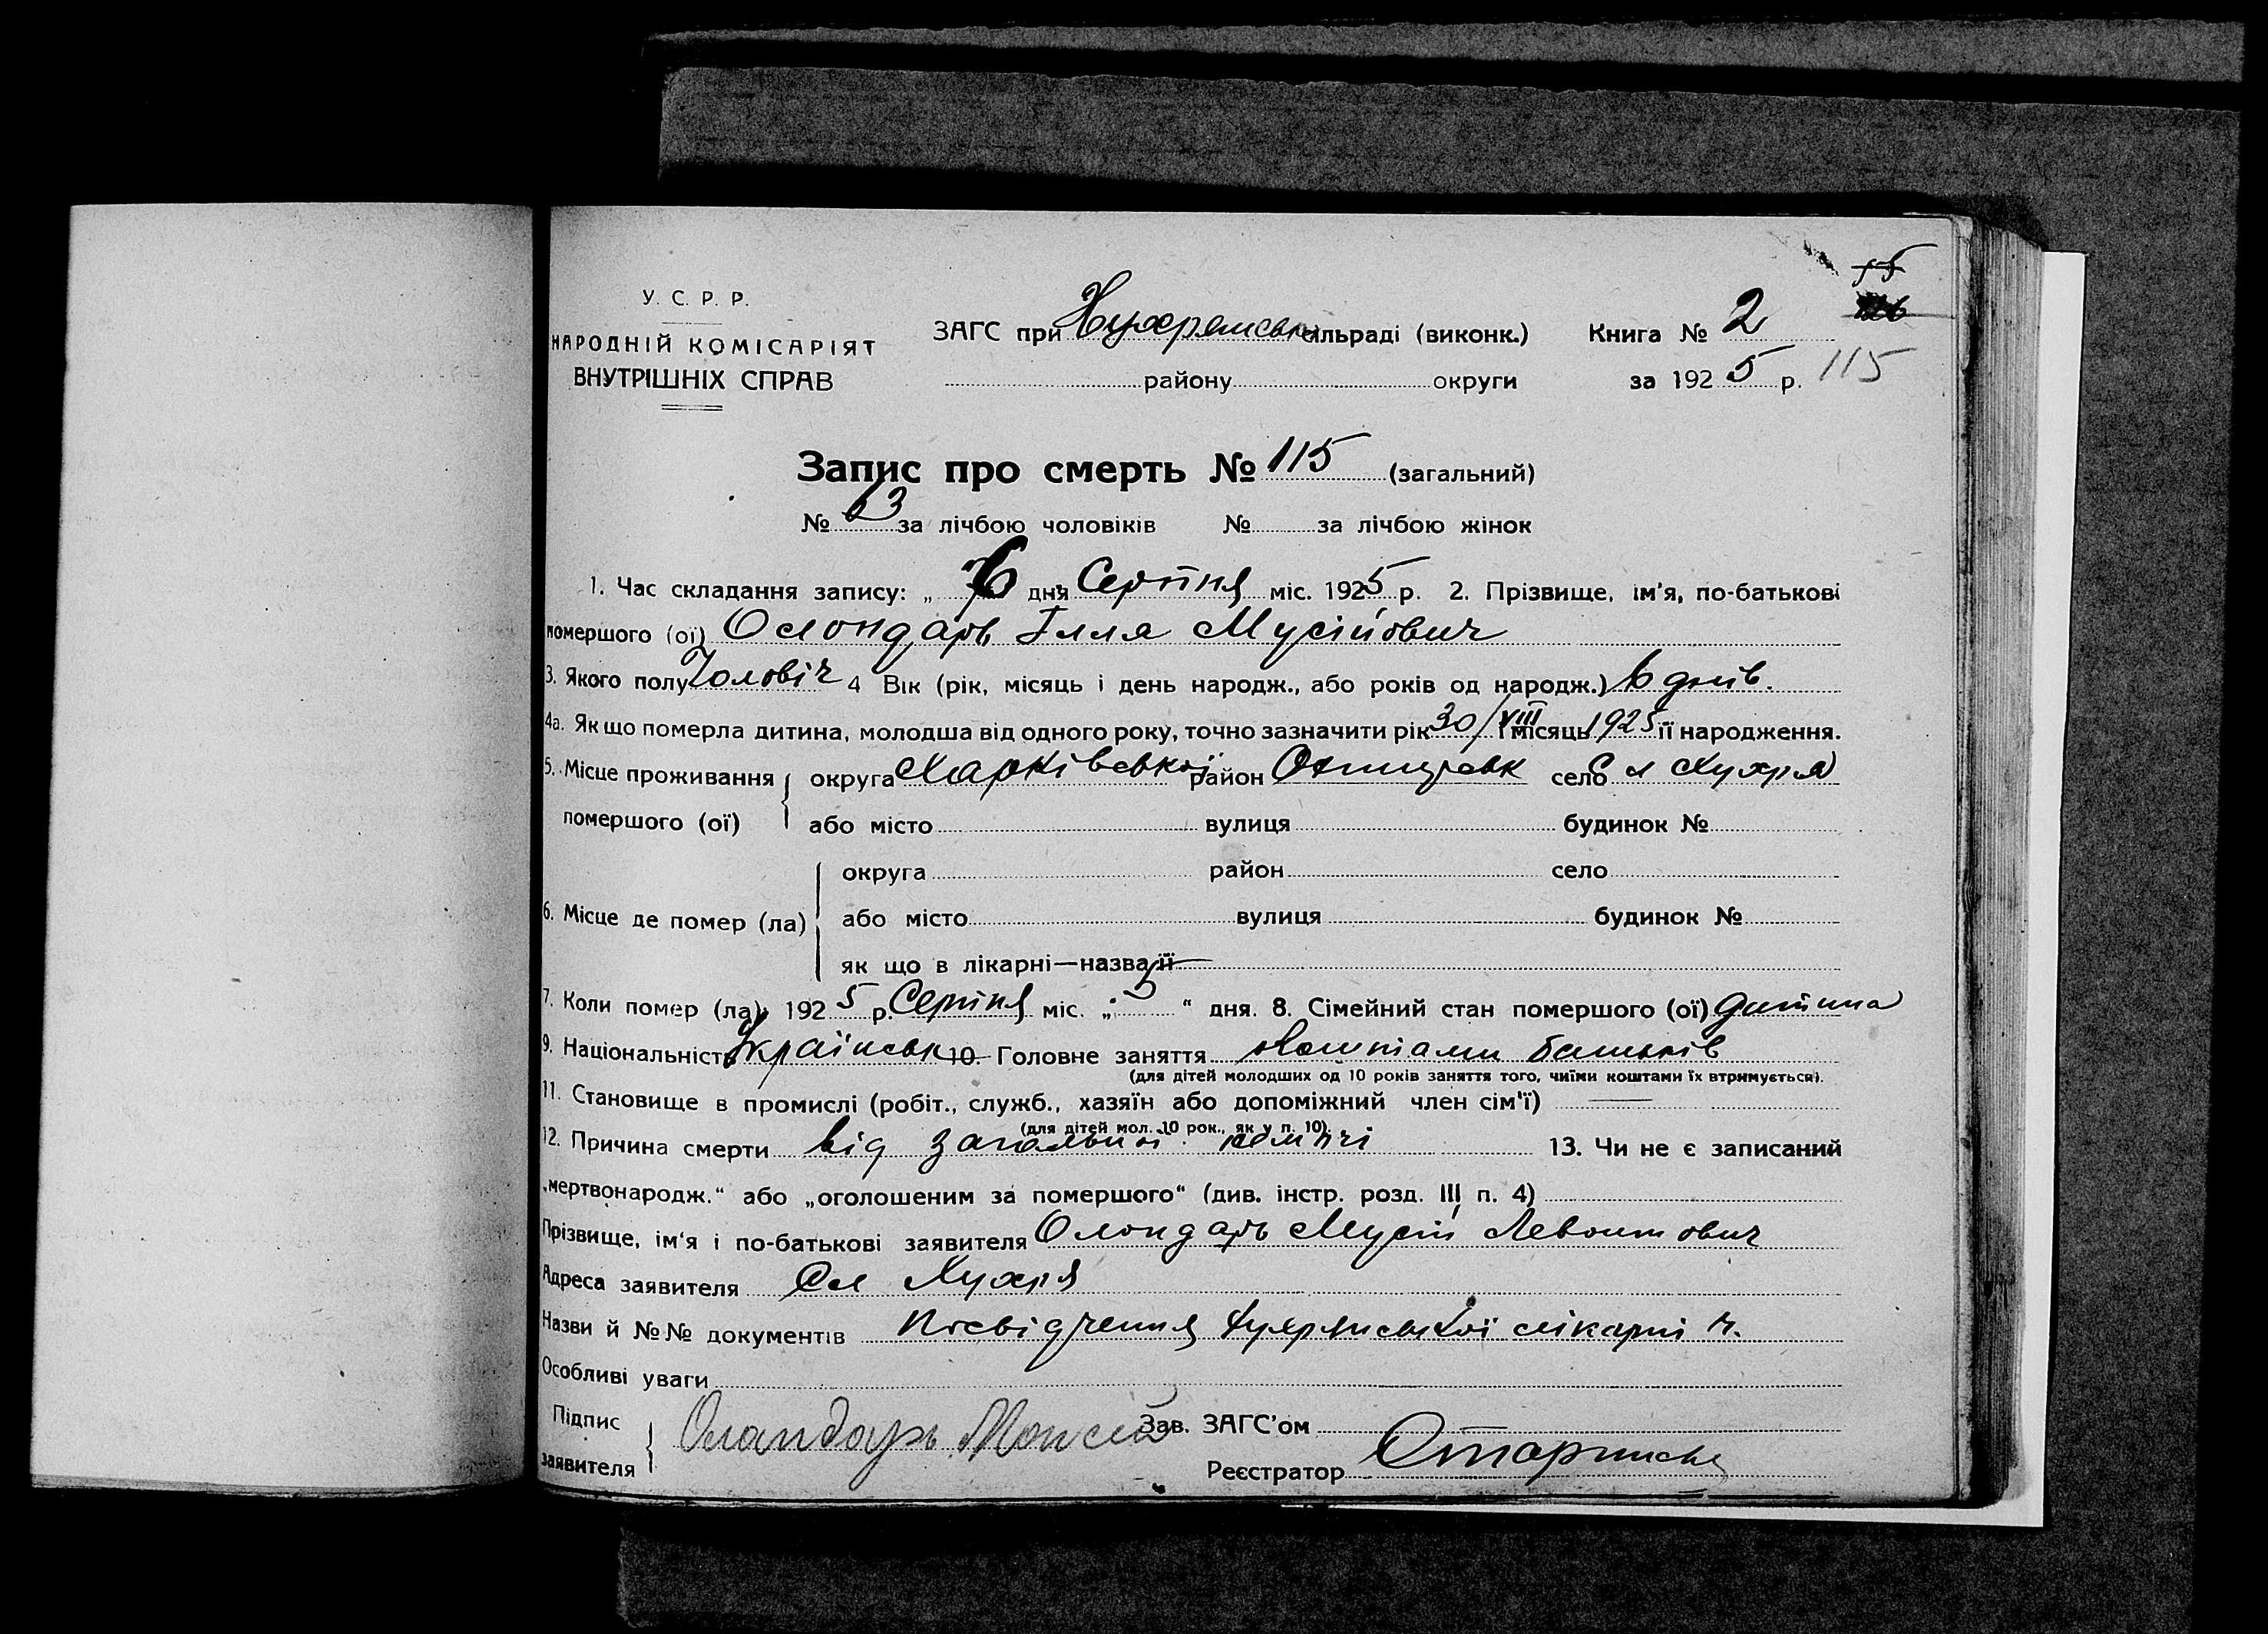 55
У. С. Р. Р.
НАРОДНІЙ КОМІСАРІЯТ
ВНУТРІШНІХ СПРАВ
ЗАГС при Хухрянськ сільраді (виконк.) Книга № 2
району округи за 1925 р. 115
Запис про смерть № 115 (загальний)
№ 63 за лічбою чоловіків № за лічбою жінок
1. Час складання запису: „ 6 " дня Серпня міс. 1925 р. 2. Прізвище, ім'я, по-батькові
помершого (ої) Олондарь Ілля Мусійович
3. Якого полу Чоловіч 4 Вік (рік, місяць і день народж., або років од народж.) 6 днів.
4а. Як що померла дитина, молодша від одного року, точно зазначити рік 30/VIII і місяць 1925 її народження.
5. Місце проживання округа Харківської район Охтирськ село Сл Хухря
помершого (ої) або місто вулиця будинок №
округа район село
6. Місце де помер (ла) або місто вулиця будинок №
як що в лікарні—назва її
7. Коли помер (ла) 1925 р. Серпня міс. „ 5 " дня. 8. Сімейний стан помершого (ої) дитина
9. Національність Українськ 10. Головне заняття Коштами батьків
(для дітей молодших од 10 років заняття того, чиїми коштами їх втримується).
11. Становище в промислі (робіт., служб., хазяїн або допоміжний член сім'ї)
(для дітей мол. 10 рок., як у п. 10).
12. Причина смерти від загальної 13. Чи не є записаний
„мертвонародж." або „оголошеним за помершого" (див. інстр. розд. III п. 4)
Прізвище, ім'я і по-батькові заявителя Олондарь Мусій Левонтович
Адреса заявителя Сл Хухря
Назви й №№ документів Посвідчення Хухрянської лікарні
Особливі уваги
Підпис
заявителя Оландарь Моисей Зав. ЗАГС'ом
Реєстратор